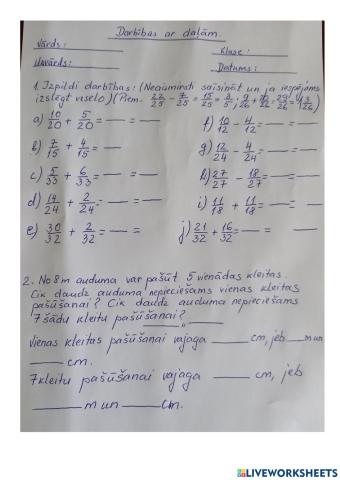 Darbības ar daļām.
Vārds: Klase:
Uzvārds: Datums:
1. Izpildi darbības: (Neaizmirsti saīsināt un ja iespējams
izslēgt veselo) (Piem. 22/25 - 7/25 = 15/25 = 3/5;
a) 10/20 + 5/20 = — = — f) 10/12 - 4/12 = — = —
b) 7/15 + 4/15 = — g) 12/24 - 4/24 = — = —
c) 5/33 + 6/33 = — = — h) 27/27 - 18/27 = — = —
d) 14/24 + 2/24 = — = — i) 11/18 + 11/18 = — = —
e) 30/32 + 2/32 = — = j) 21/32 + 16/32 = — = —
2. No 8 m auduma var pašūt 5 vienādas kleitas.
Cik daudz auduma nepieciešams vienas kleitas
pašūšanai? Cik daudz auduma nepieciešams
7 šādu kleitu pašūšanai?
Vienas kleitas pašūšanai vajaga ___ cm, jeb ___ m un
___ cm.
7 kleitu pašūšanai vajaga ___ cm, jeb
___ m un ___ cm.
LIVEWORKSHEETS